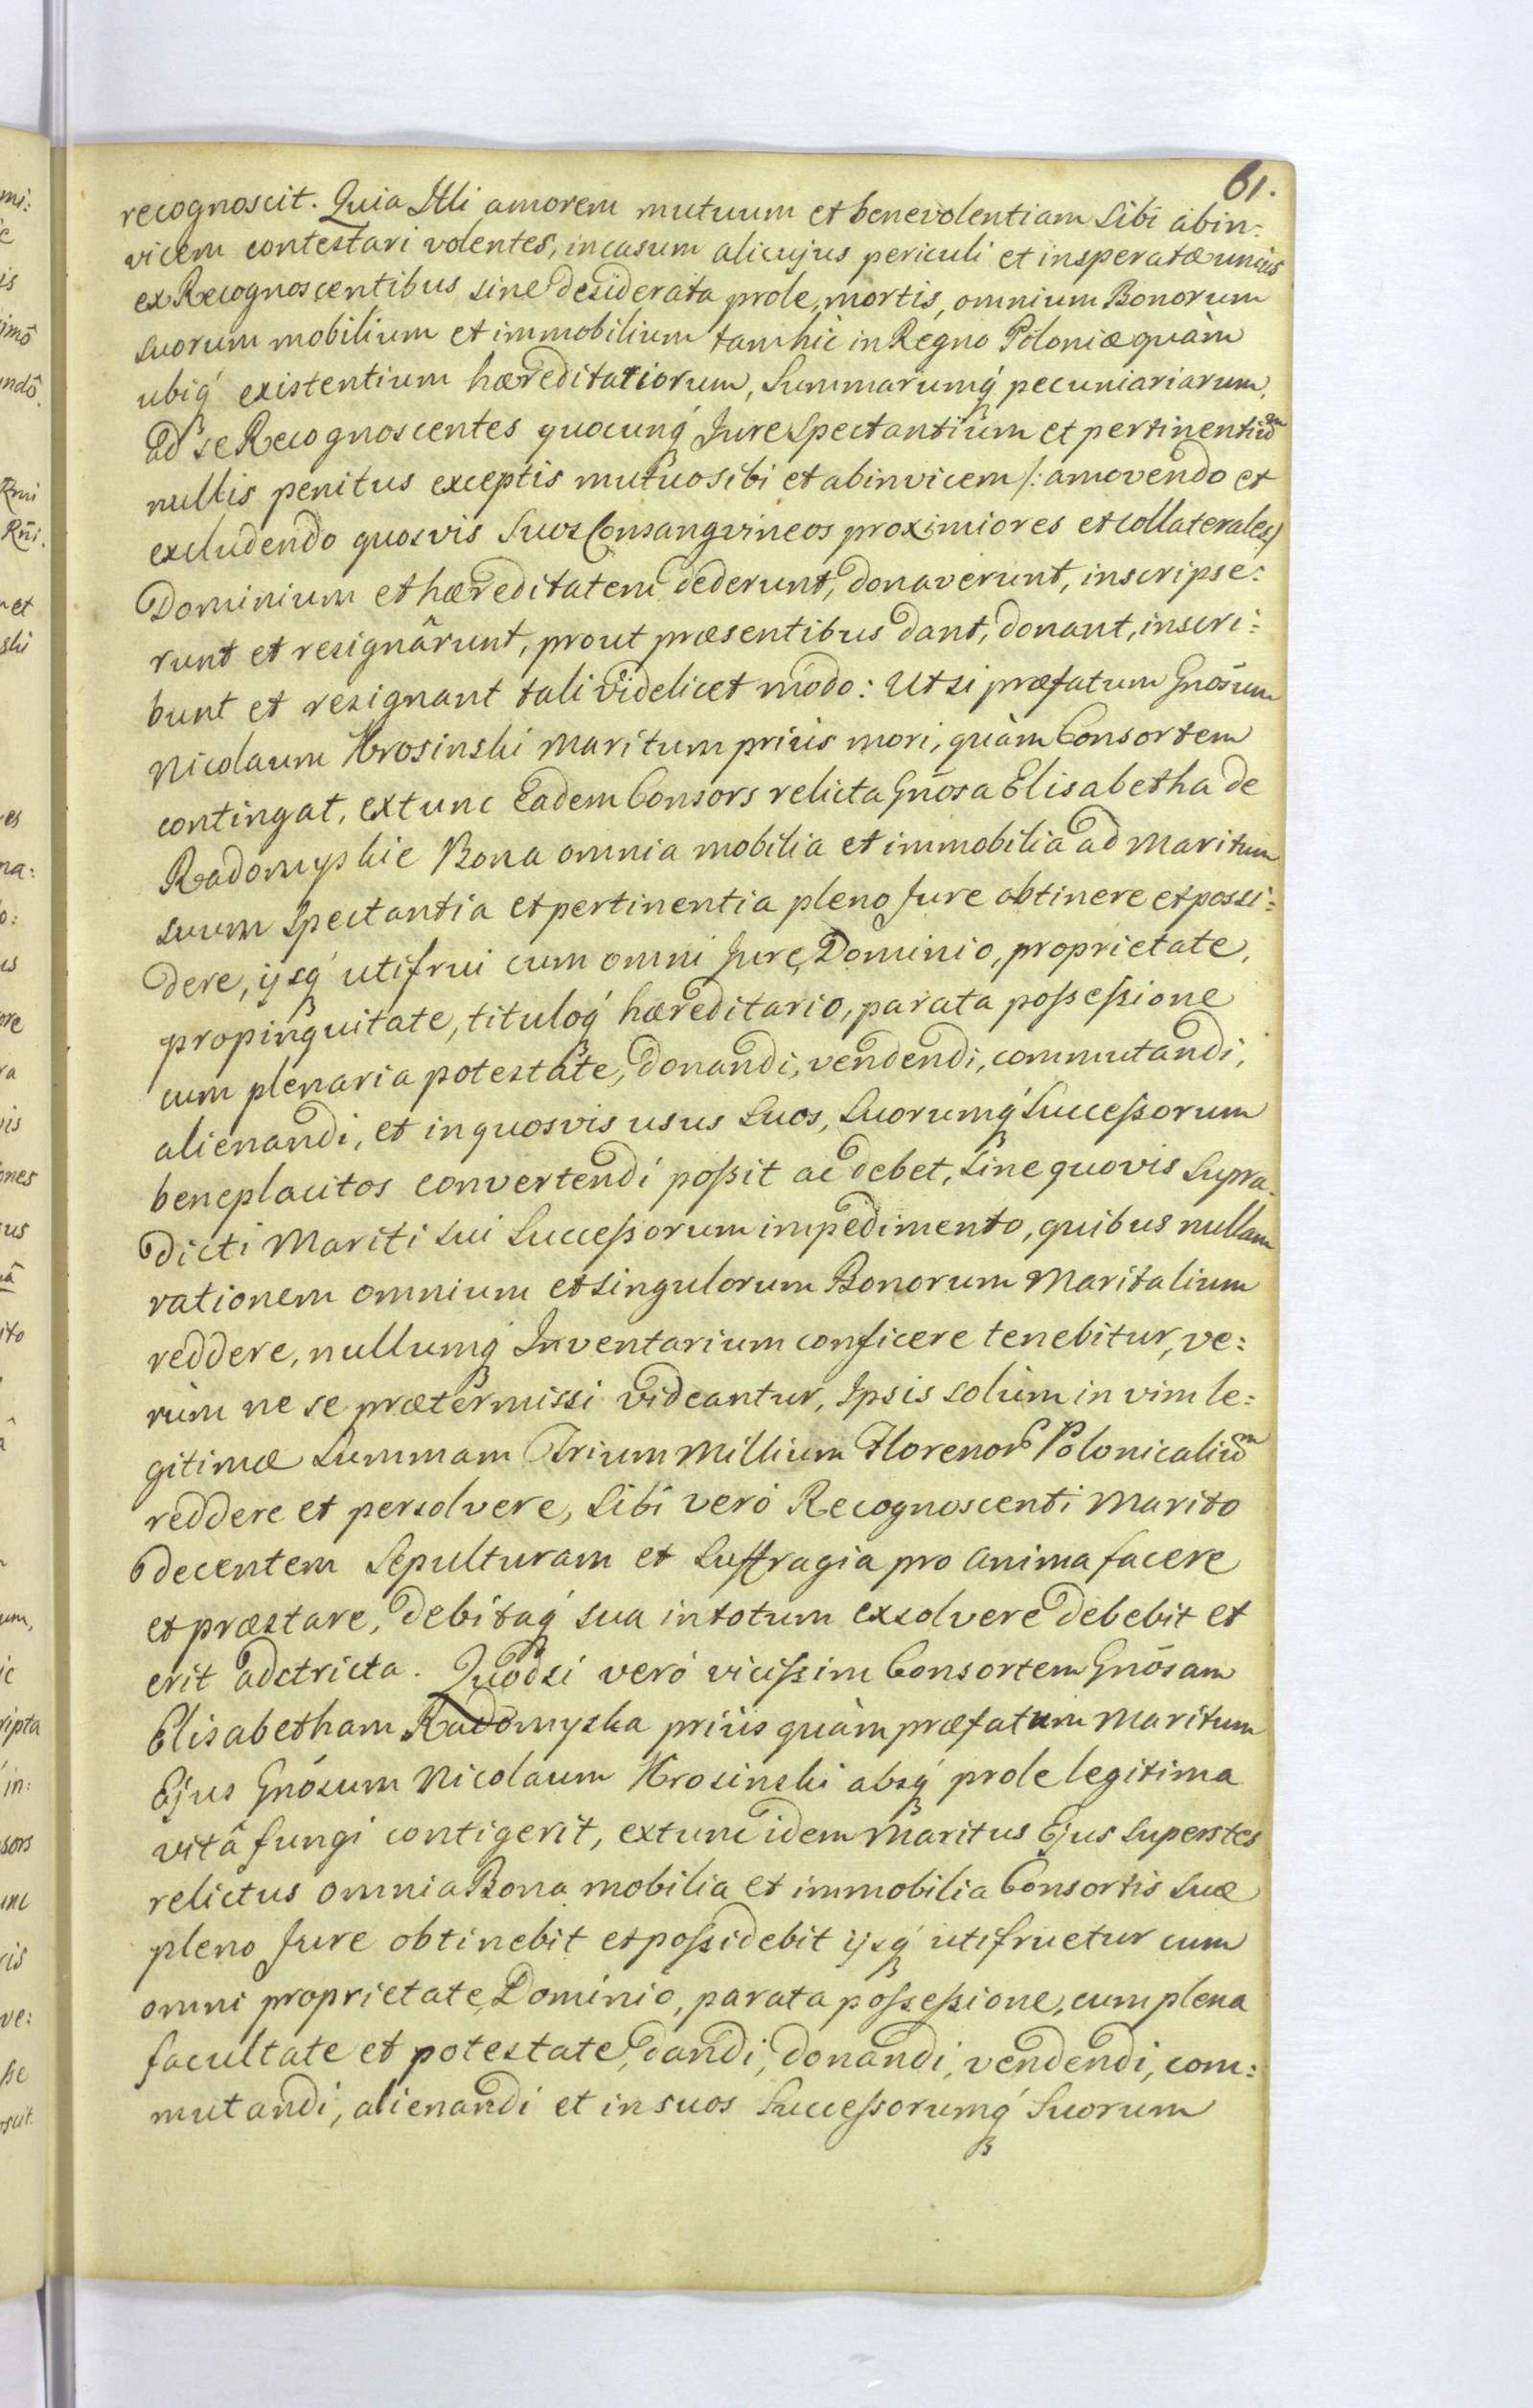 61.
recognoscit. Quia Illi amorem mutuum et benevolentiam Sibi abin:
vicem contestari volentes, in casum alicujus periculi et insperatæ unius
ex Recognoscentibus sine desiderata prole, mortis, omnium Bonorum
suorum mobilium et immobilium tam hic in Regno Poloniæ quàm
ubiq́ existentium hæreditariorum, Summarumq́ pecuniariarum,
ad se Recognoscentes quocunq́ Jure Spectantium et pertinentiũm
nullis penitus exceptis mutuo sibi et abinvicem /: amovendo et
excludendo quosvis Suos Consangvineos proximiores et collaterales/
Dominium et hæreditatem dederunt, donaverunt, inscripse:
runt et resignârunt, prout præsentibus dant, donant, inscri:
bunt et resignant tali videlicet modo: Ut si præfatum Gnōsum
Nicolaum Krosinski Maritum priùs mori, quàm Consortem
contingat, extunc Eadem Consors relicta Gnōsa Elisabetha de
Radomyskie Bona omnia mobilia et immobilia ad Maritum
suum Spectantia et pertinentia pleno Jure obtinere et possi:
dere, ijsq́ utifrui cum omni Jure, Dominio, proprietate,
propinquitate, tituloq́ hæreditario, parata possessione
cum plenaria potestate, donandi, vendendi, commutandi,
alienandi, et in quosvis usus Suos, Suorumq́ Successorum
beneplacitos convertendi possit ac debet, Sine quovis Supra:
dicti Mariti sui Successorum impedimento, quibus nullam
rationem omnium et singulorum Bonorum Maritalium
reddere, nullumq́ Inventarium conficere tenebitur, ve:
rùm ne se prætermissi videantur, Ipsis solùm in vim le:
gitimæ Summam Trium Millium Florenor Polonicaliũm
reddere et persolvere, Sibi verò Recognoscenti Marito
decentem Sepulturam et Suffragia pro anima facere
et præstare, debitaq́ sua in totum exsolvere debebit et
erit adstricta. Quodsi verò vicissim Consortem Gnōsam
Elisabetham Radomyska priùs quàm præfatum Maritum
Ejus Gnōsum Nicolaum Krosinski absq́ prole legitima
vitâ fungi contigerit, extunc idem Maritus Ejus Superstes
relictus omnia Bona mobilia et immobilia Consortis Suæ
pleno Jure obtinebit et possidebit ijsq́ utifruetur cum
omni proprietate, Dominio, parata possessione, cum plena
facultate et potestate, dandi, donandi, vendendi, com:
mutandi, alienandi et in suos Successorumq́ Suorum